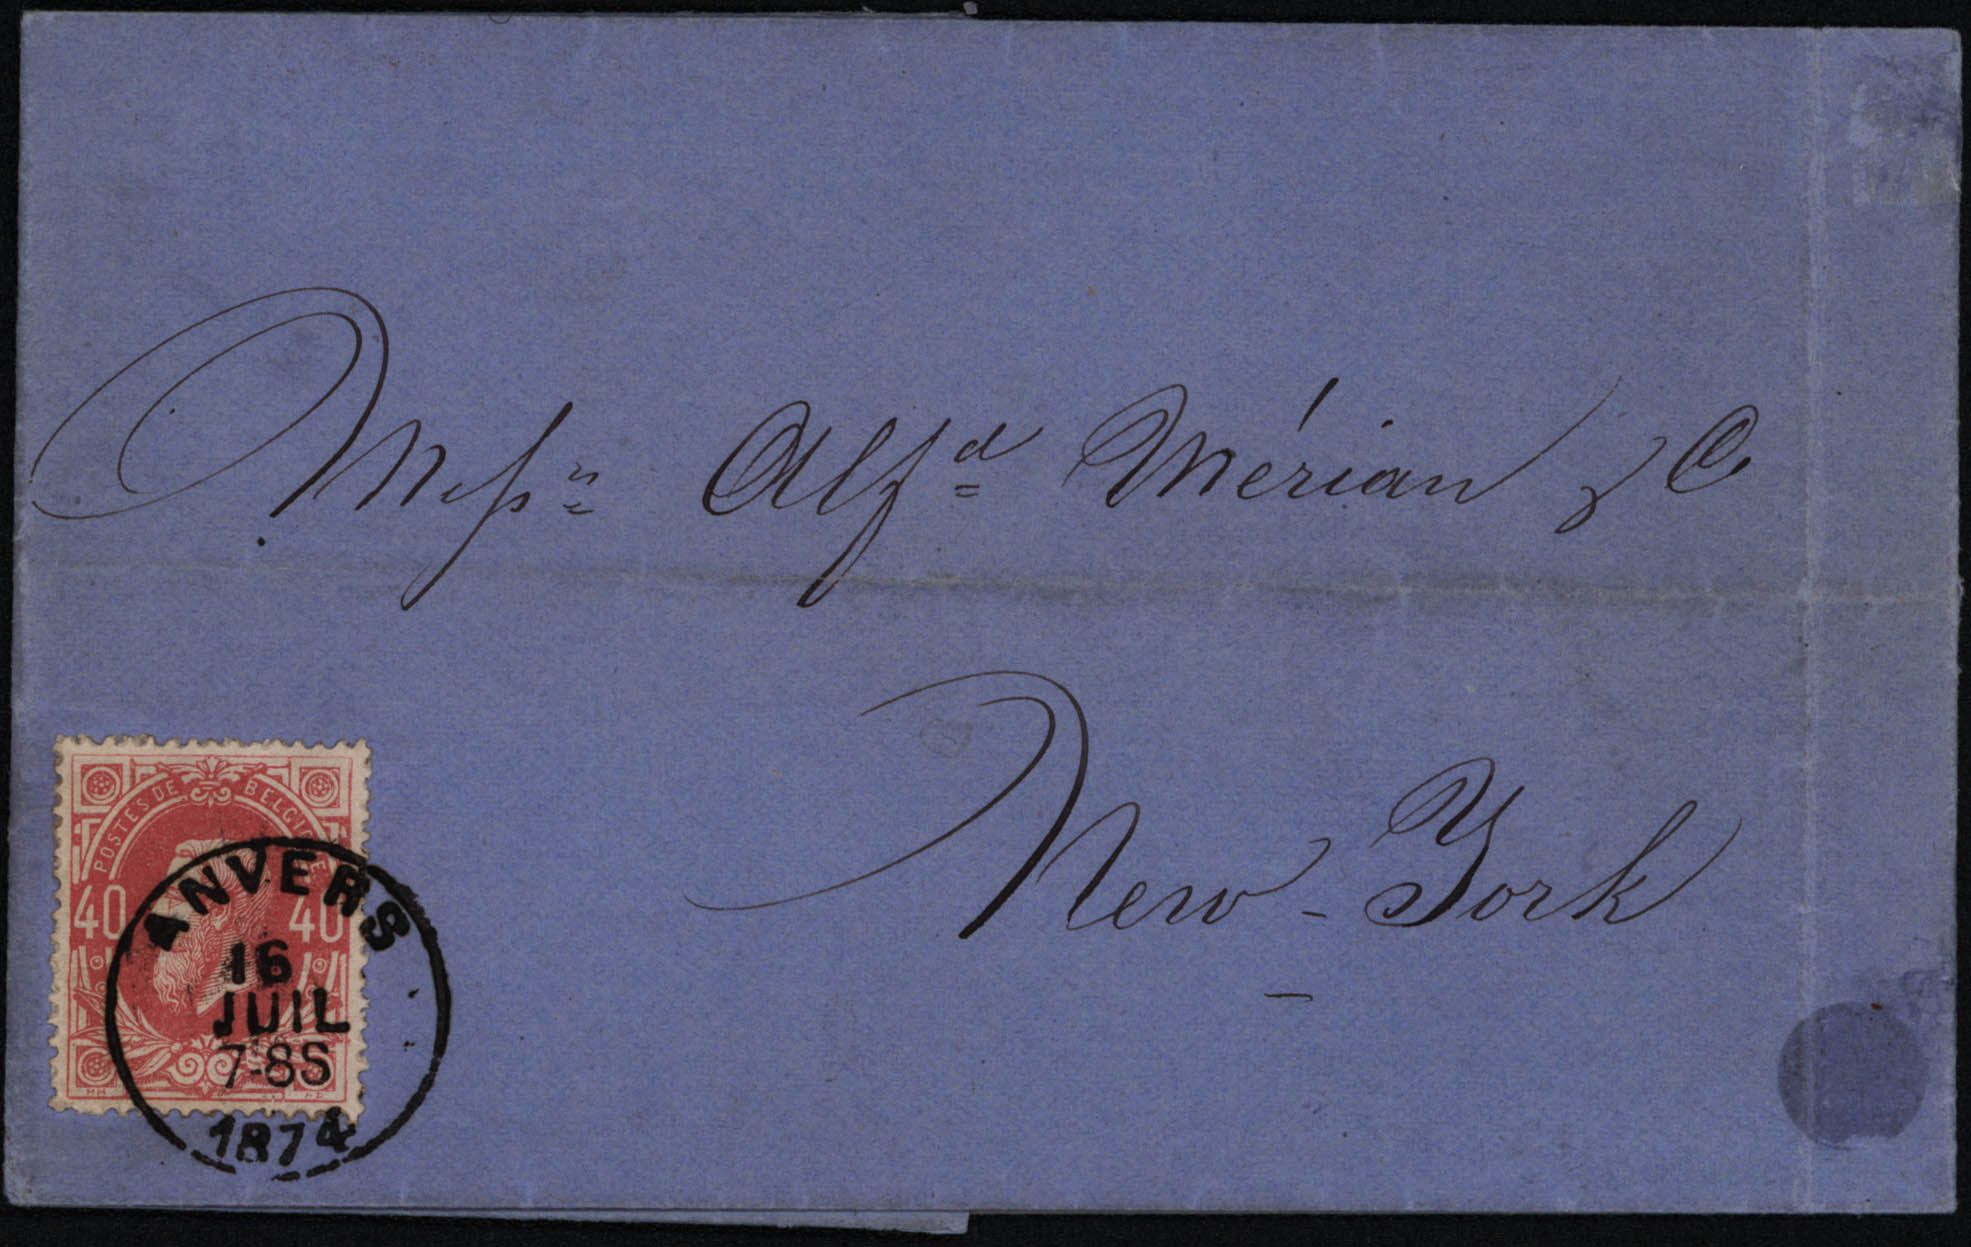 Messrs Alfd Mérian & C.
New-York
POSTES DE BELGIQUE
40 40
ANVERS
16
JUIL
7-8S
1874